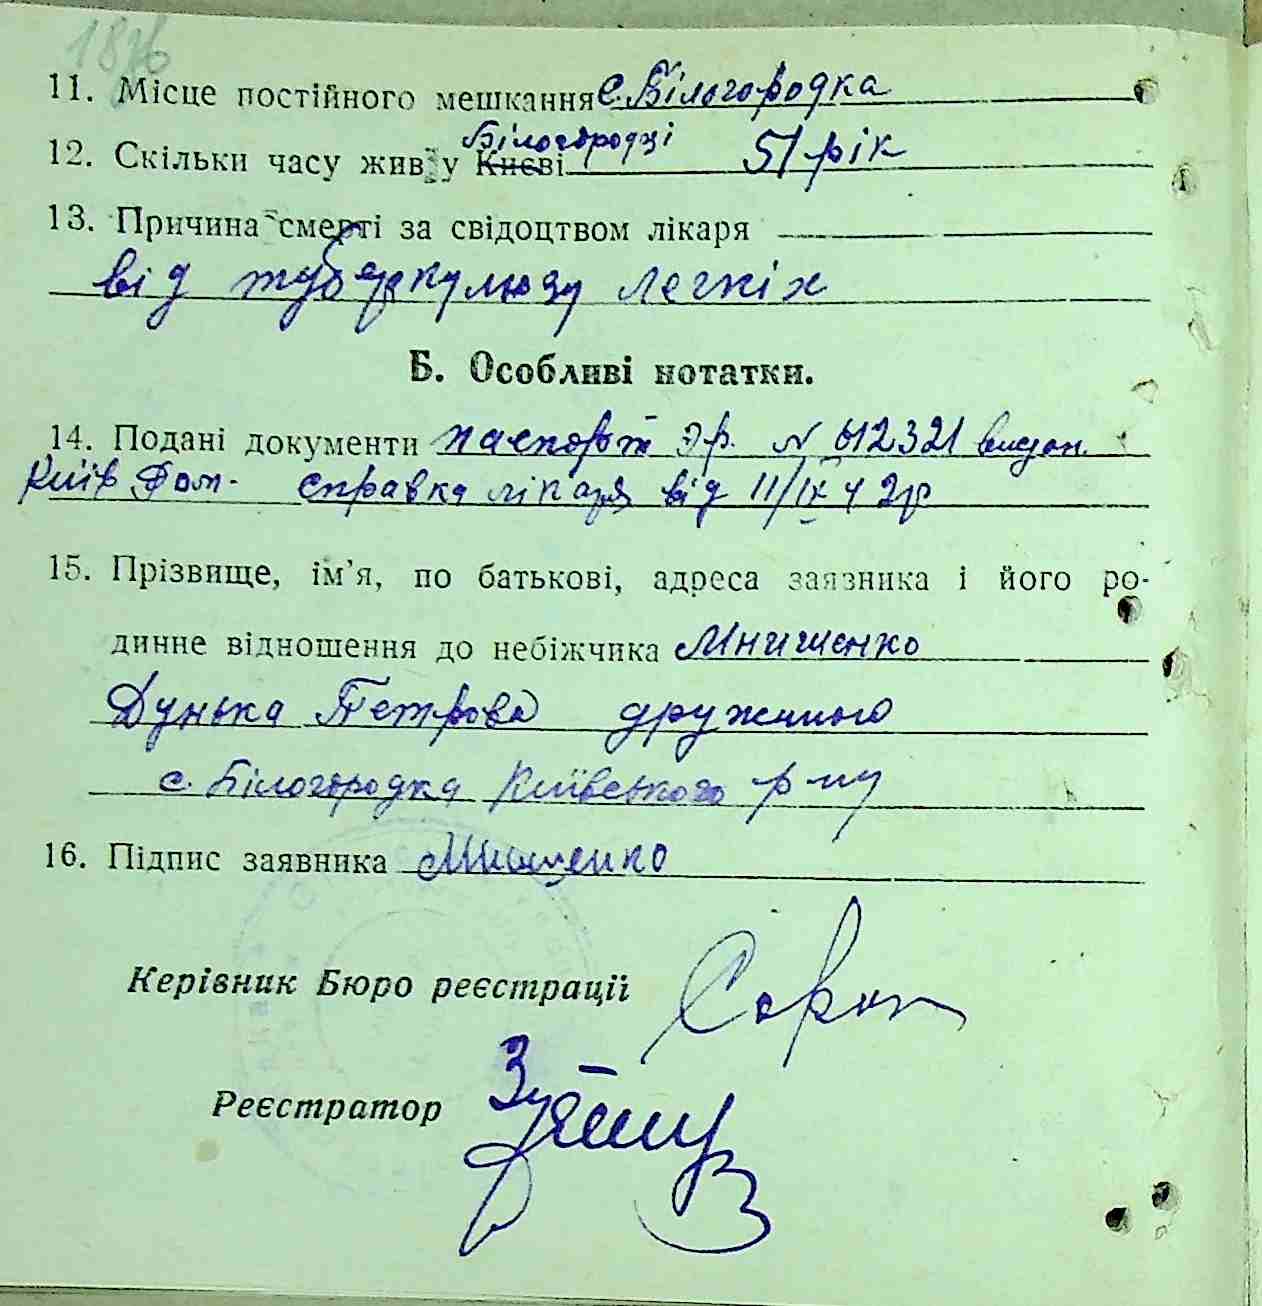 1876
11. Місце постійного мешкання с. Білогородка
Білогородці
12. Скільки часу жив у Києві 51 рік
13. Причина смерті за свідоцтвом лікаря
від туберкульозу легкіх
Б. Особливі нотатки.
14. Подані документи паспорт Эр. № 612321 видан.
Київ справка лікаря від 11/IX 42р
15. Прізвище, ім’я, по батькові, адреса заявника і його ро-
динне відношення до небіжчика Мнишенко
Дунька Петрова дружиною
с. Білогородка Київського р-ну
16. Підпис заявника Мнишенко
Керівник Бюро реєстрації
Реєстратор